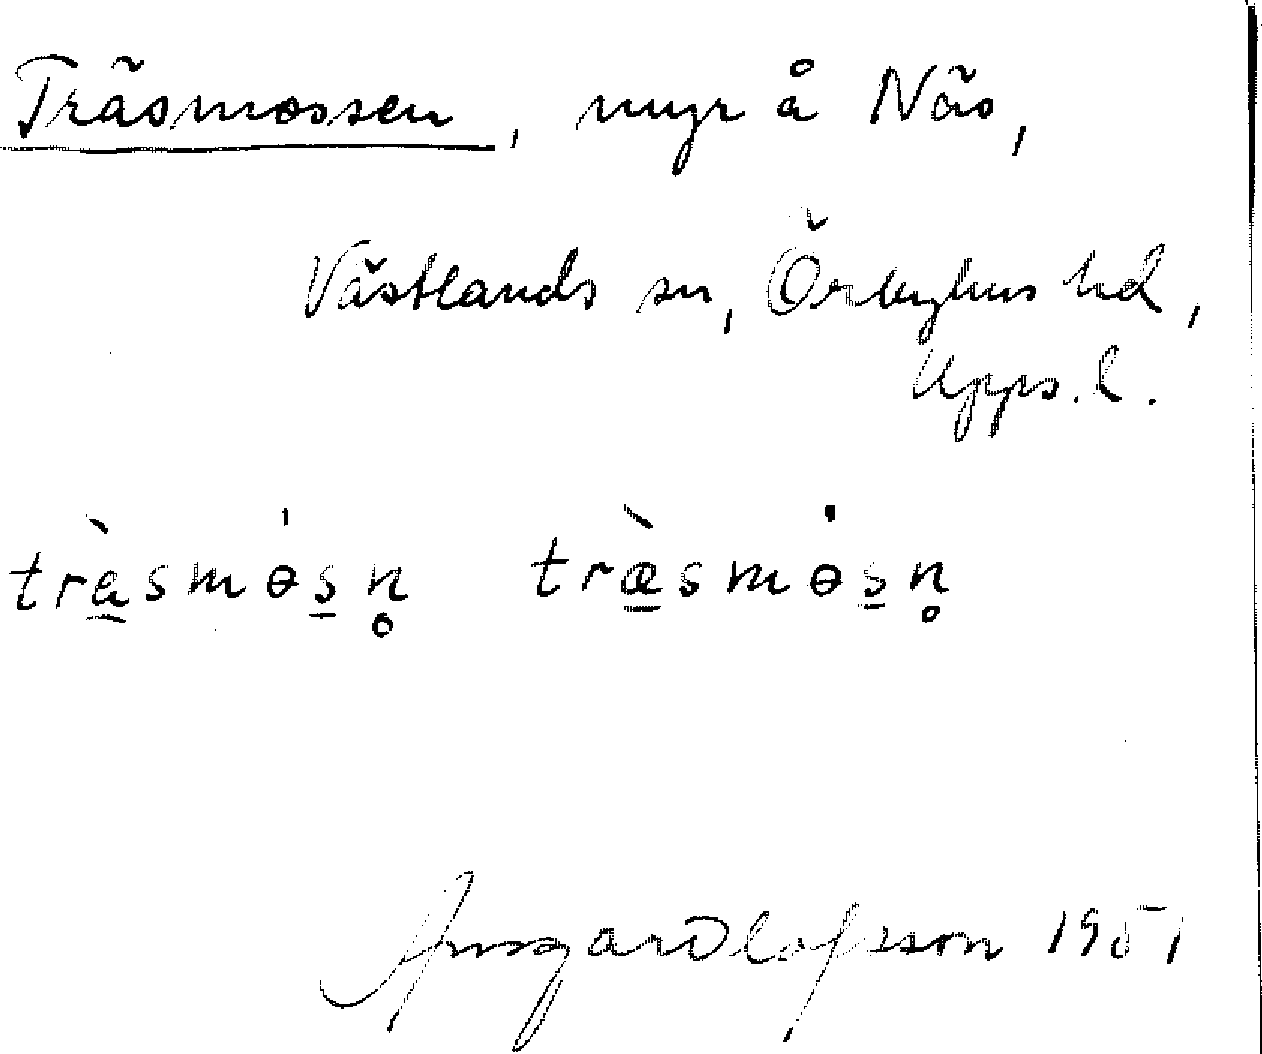 Träsmossen, myr å Näs,
Västlands sn, Örbyhus hd,
Upps. l.
tràsmɵ̇sn̥ træ̀smɵ̇sn̥
Ansgar Olofsson 1951